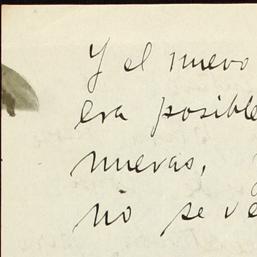 Y el nuevo
era posible
nuevas,
no se ve